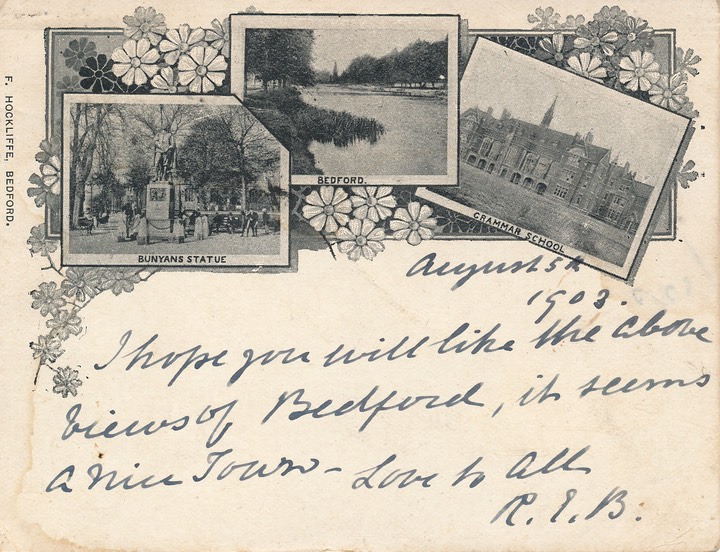 F. HOCKLIFFE, BEDFORD.
BUNYANS STATUE
BEDFORD.
GRAMMAR SCHOOL
August 5th
1903.
I hope you will like the above
Views of Bedford, it seems
a nice Town - Love to All
R. E. B.